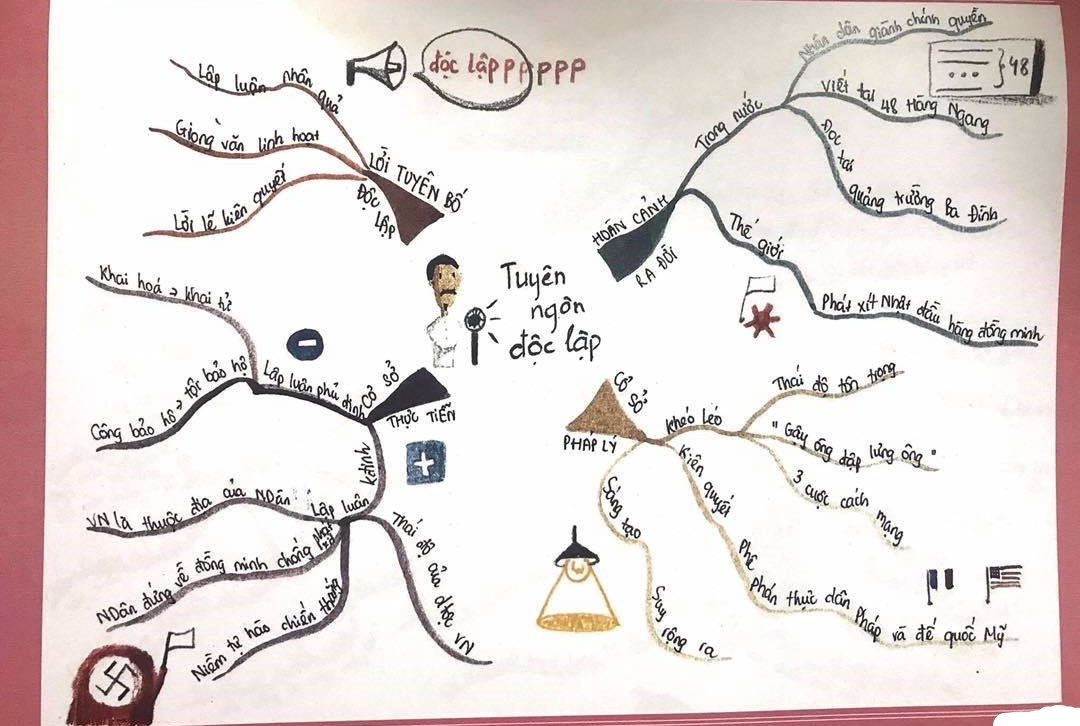 Tuyên
ngôn
độc lập
độc lập P P P P P P
LỜI TUYÊN BỐ
ĐỘC LẬP
Lập luận nhân quả
Giọng văn linh hoạt
Lời lẽ kiên quyết
HOÀN CẢNH
RA ĐỜI
Trong nước
Nhân dân giành chính quyền
Viết tại 48 Hàng Ngang
48
Đọc tại quảng trường Ba Đình
Thế giới
Phát xít Nhật đầu hàng đồng minh
CƠ SỞ
PHÁP LÝ
Khéo léo
Thái độ tôn trọng
"Gậy ông đập lưng ông"
3 cuộc cách mạng
Kiên quyết
Phê phán thực dân Pháp và đế quốc Mỹ
Sáng tạo
Suy rộng ra
CƠ SỞ
THỰC TIỄN
Lập luận phủ định
Khai hoá → khai tử
Công bảo hộ → tội bảo hộ
Lập luận k.định
VN là thuộc địa của
NDân đứng về đồng minh chống phát xít
Niềm tự hào chiến thắng
Thái độ của được VN